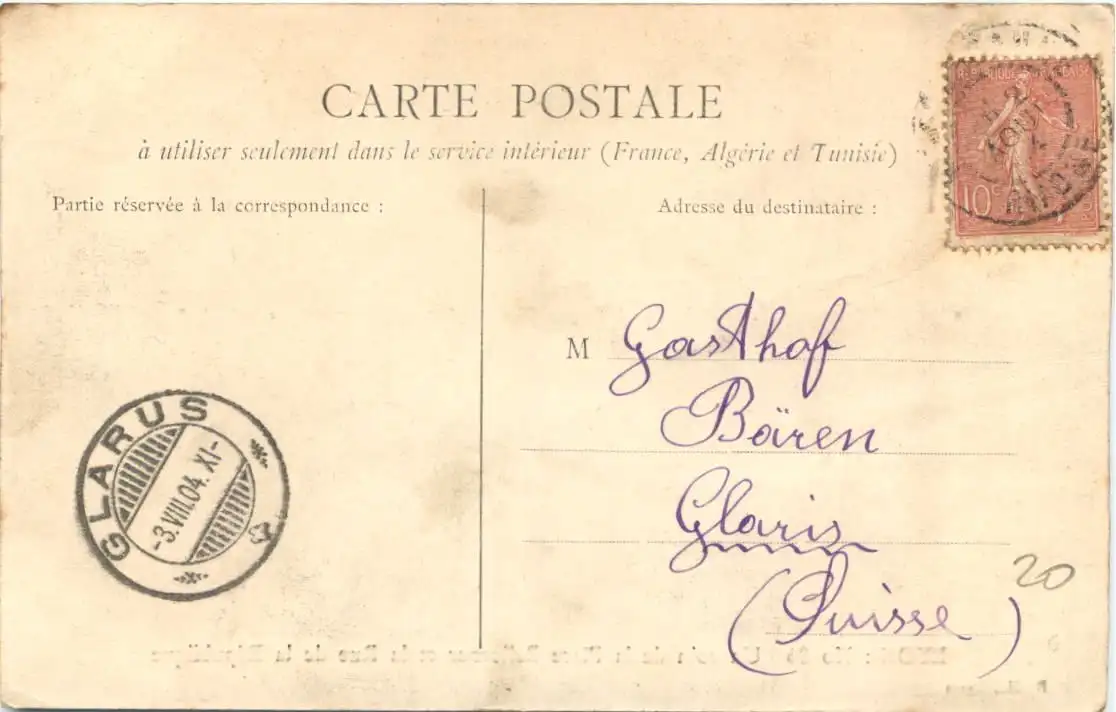 CARTE POSTALE
à utiliser seulement dans le service intérieur (France, Algérie et Tunisie)
Partie réservée à la correspondance :
Adresse du destinataire :
REPUBLIQUE FRANÇAISE
10c
M Gasthof
Bären
Glaris
(Suisse)
20
GLARUS
-3.VIII.04. XI-